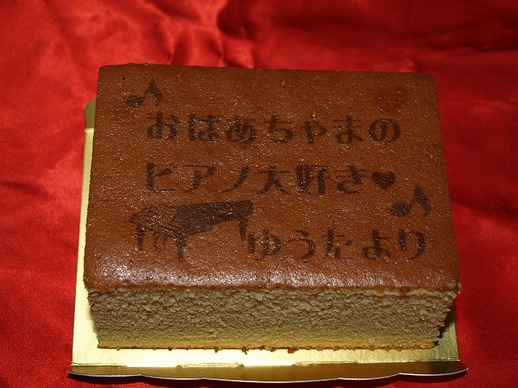 おばあちゃまの
ピアノ大好き♥
ゆうたより